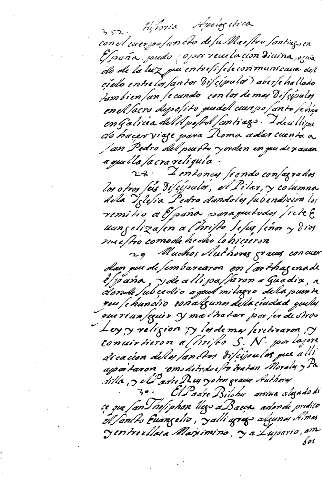 352 Historia Apologetica
con el cuerpo santo de su Maestro santiago en
España, pudo, o por revelacion divina,
do de la luz, que entre si se comunicava del
cielo entre los santos Discipulos averse hallado
tambien san secundo con los demas Discipulos
en el sacro deposito que del cuerpo santo se hizo
en Galicia del Apostol santiago. I de alli pu
do hacer viage para Roma a dar cuenta a
san Pedro del puesto, y orden en que dexavan
aquella sacra reliquia.
28. Entonces siendo consagrados
los otros seis discipulos, el Pilar, y columna
de la Iglesia Pedro dandoles su bendicion los
remitio a España para que todos siete
Evangelizasen a Christo Jesus señor y Dios
nuestro como de hecho lo hicieron.
29. Muchos Authores graves concuer
dan que desembarcaron en Carthagena de
España, y de alli pasaron a Guadix,
donde sucedio aquel milagro de la puente
que se hundio con algunos de la ciudad que los
querian seguir y maltratar por ser de otra
Ley y religion, y los demas se retiraron, y
convirtieron a Christo S. N. por la pre
dicacion de los santos discipulos que alli
aportaron
y el Padre y otros graves Authores
30. El Padre Bilches arriva alegado di
ce que san Thesiphon llego a Baeza adonde predico
el santo Evangelio, y alli gano algunas Almas
y entre ellas a Maximino, y a Lupario, am
bos